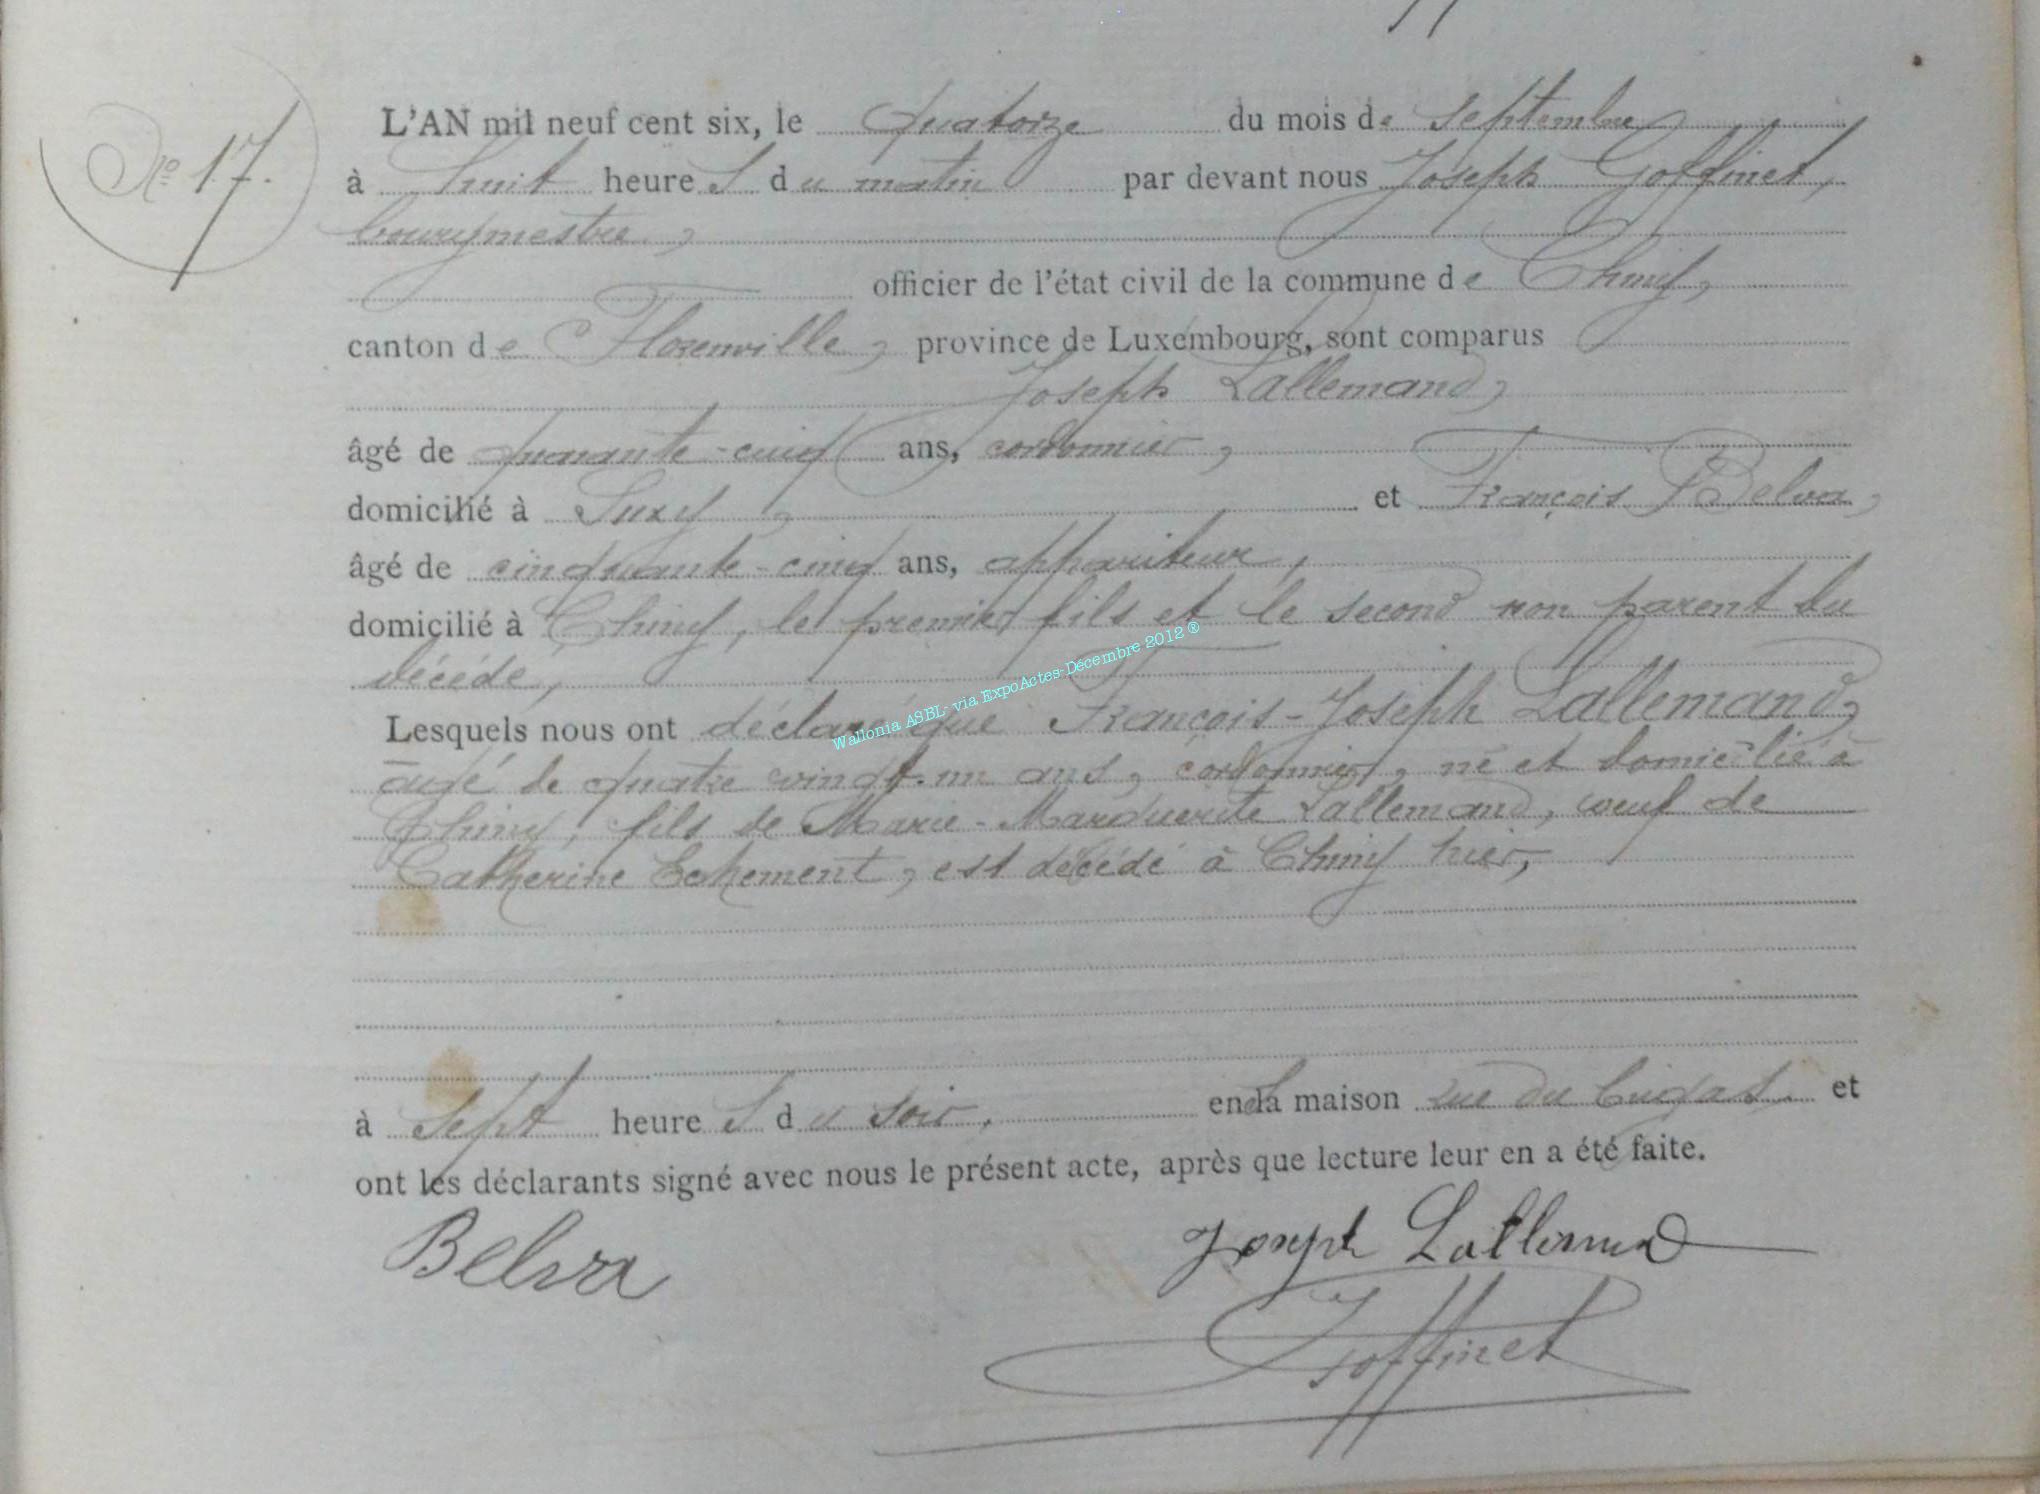 Nº 17.
L'AN mil neuf cent six, le quatorze du mois de septembre
à huit heures du matin par devant nous Joseph Goffinet,
bourgmestre,
officier de l'état civil de la commune de Chiny,
canton de Florenville, province de Luxembourg, sont comparus
Joseph Lallemand,
âgé de quarante-cinq ans, cordonnier,
domicilié à Suxy, et François Belva,
âgé de cinquante-cinq ans, appariteur,
domicilié à Chiny, le premier fils et le second non parent du
décédé,
Lesquels nous ont déclaré que François-Joseph Lallemand,
âgé de quatre vingt-un ans, cordonnier, né et domicilié à
Chiny, fils de Marie-Marguerite Lallemand, veuf de
Catherine Echement, est décédé à Chiny hier,
à sept heures du soir, en sa maison rue du et
ont les déclarants signé avec nous le présent acte, après que lecture leur en a été faite.
Belva Joseph Lallemand
Goffinet
Wallonia ASBL- via ExpoActes-Décembre 2012 ®